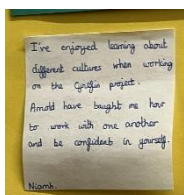 I've enjoyed learning about
different cultures when working
on the Cynefin project.
Arnold have taught me how
to work with one another
and be confident in yourself.
Niamh.